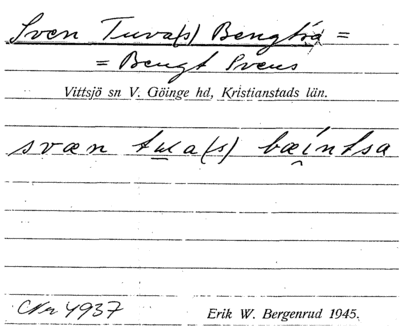 Sven Tuva(s) Bengts =
= Bengt Svens
Vittsjö sn V. Göinge hd, Kristianstads län.
svæn tu̲a(s) bæintsa
CNr 4937
Erik W. Bergenrud 1945.